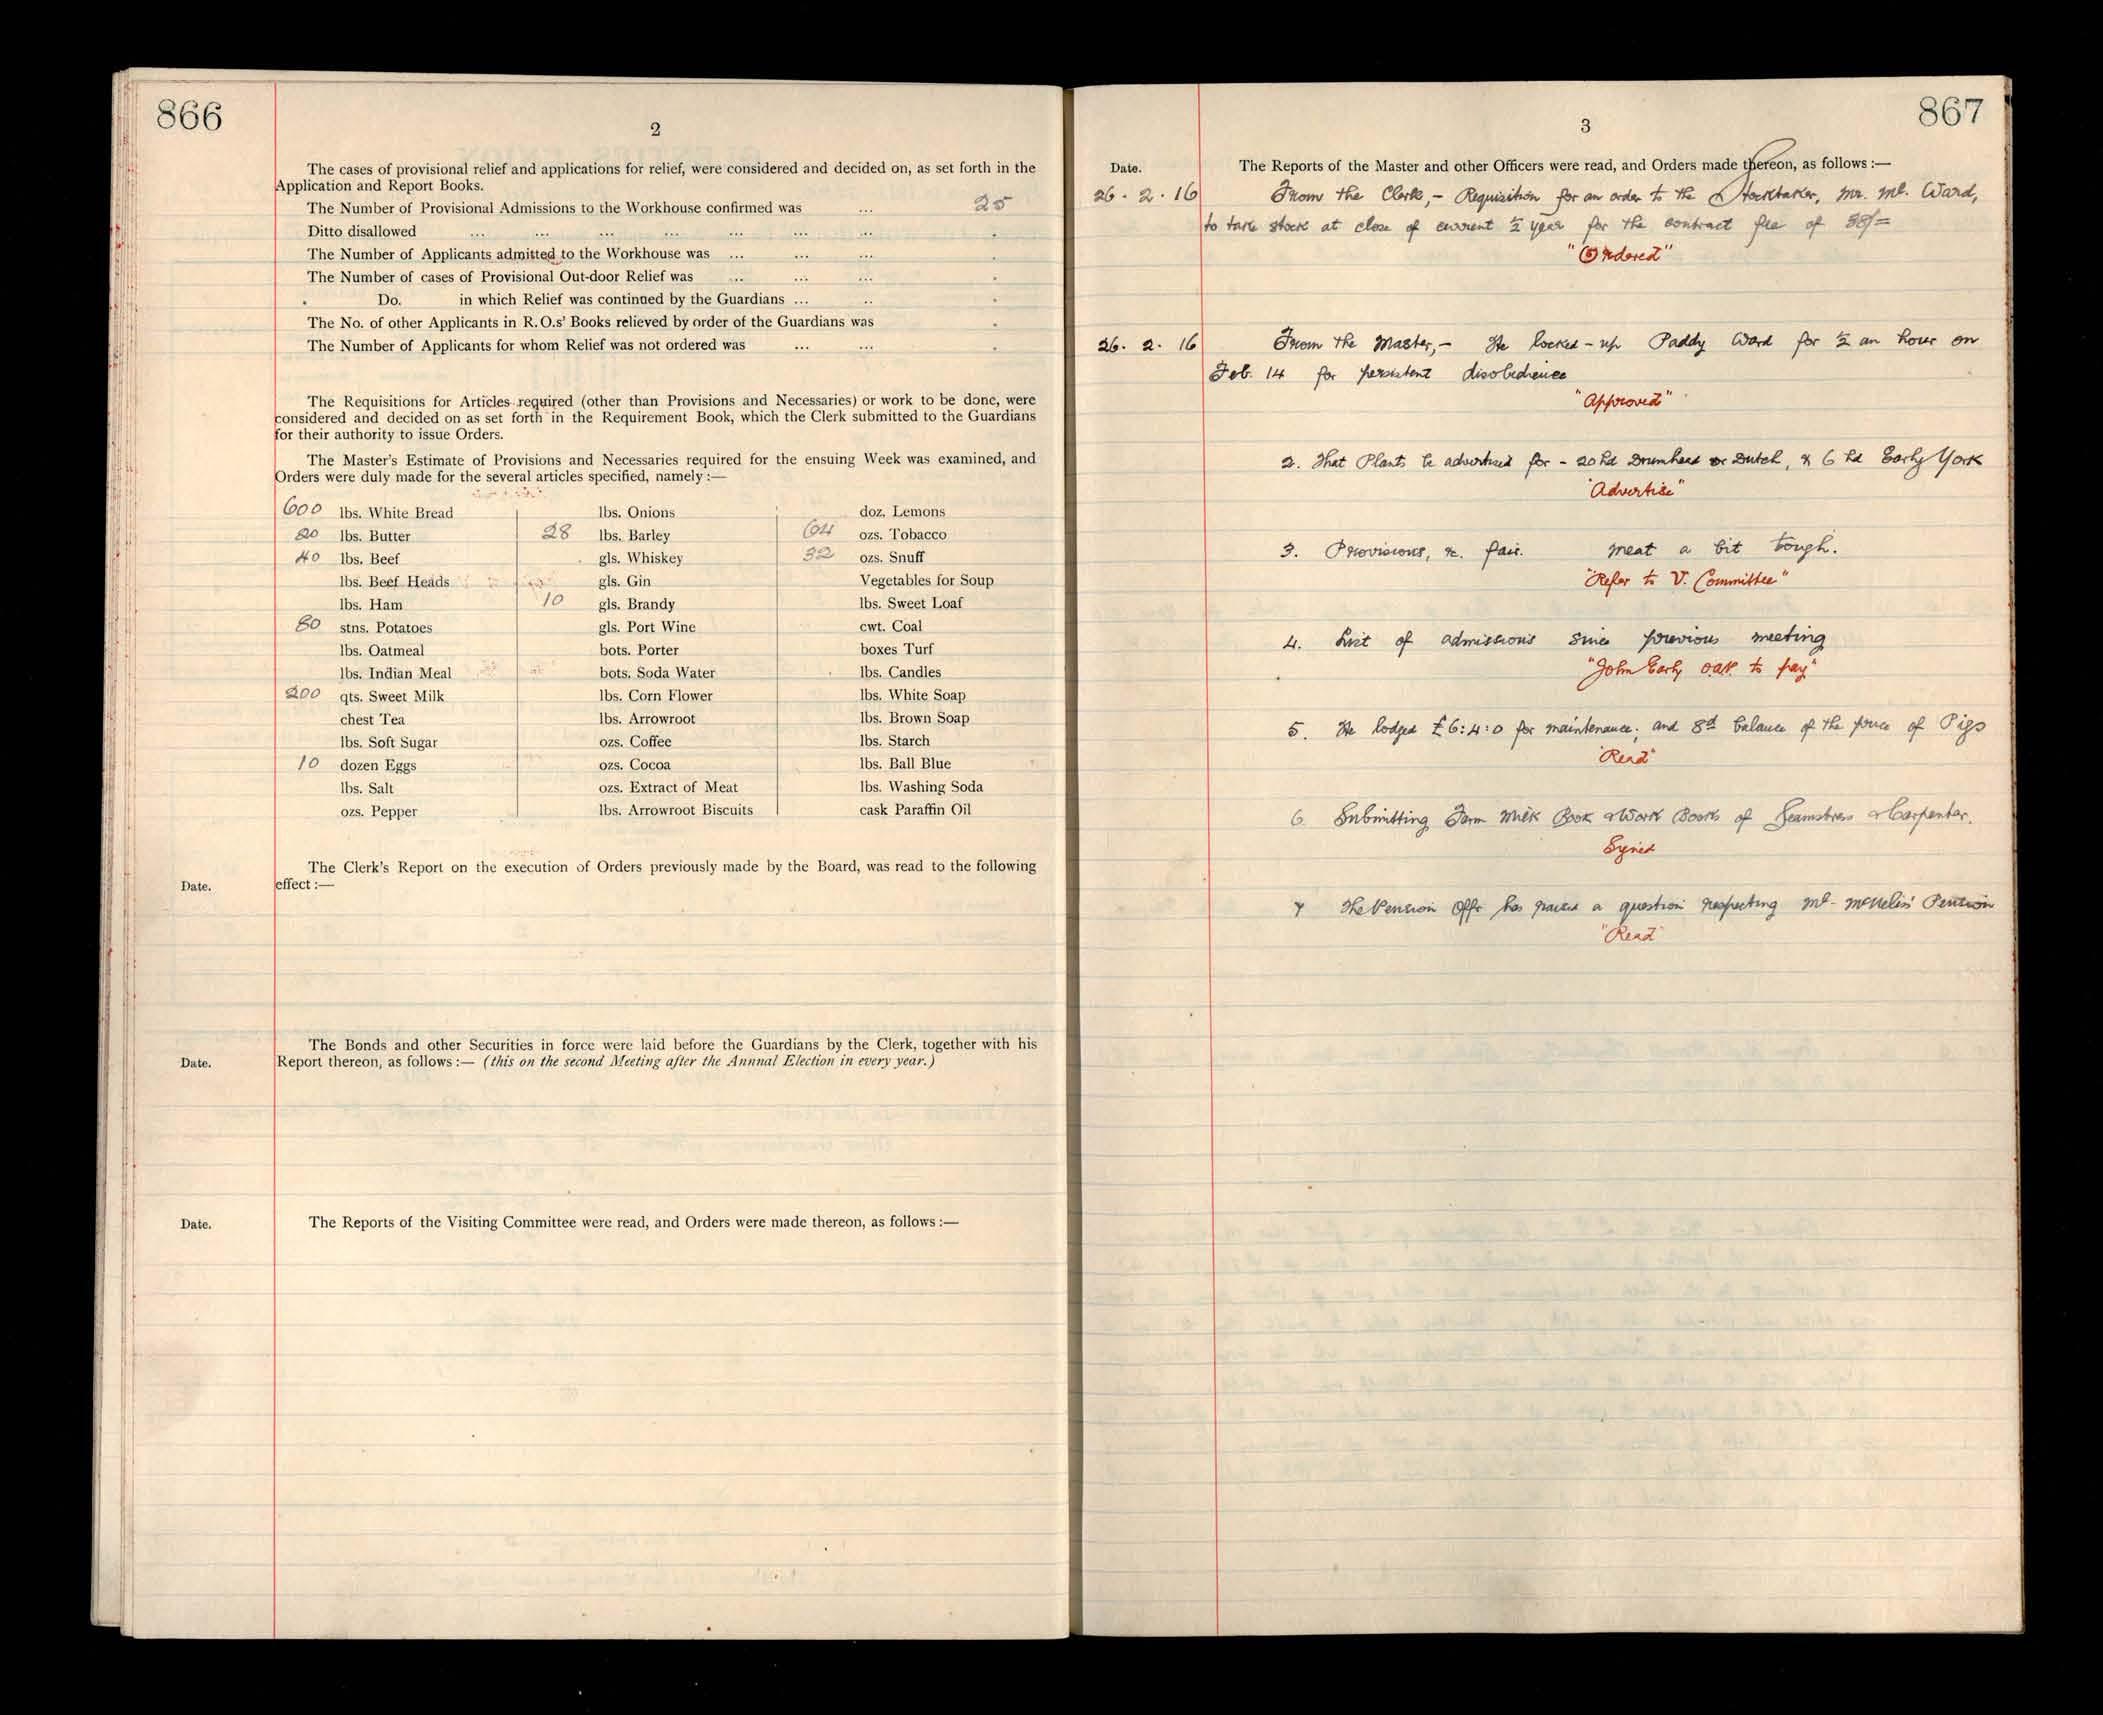 866
2
The cases of provisional relief and applications for relief, were considered and decided on, as set forth in the
Application and Report Books.
The Number of Provisional Admissions to the Workhouse confirmed was ... 25
Ditto disallowed ... ... ... ... ... ... ...
The Number of Applicants admitted to the Workhouse was ... ... ...
The Number of cases of Provisional Out-door Relief was ... ... ...
Do. in which Relief was continued by the Guardians ... ..
The No. of other Applicants in R.O.s' Books relieved by order of the Guardians was
The Number of Applicants for whom Relief was not ordered was ... ...
The Requisitions for Articles required (other than Provisions and Necessaries) or work to be done, were
considered and decided on as set forth in the Requirement Book, which the Clerk submitted to the Guardians
for their authority to issue Orders.
The Master's Estimate of Provisions and Necessaries required for the ensuing Week was examined, and
Orders were duly made for the several articles specified, namely :—
600 lbs. White Bread
20 lbs. Butter
40 lbs. Beef
lbs. Beef Heads
lbs. Ham
80 stns. Potatoes
lbs. Oatmeal
lbs. Indian Meal
200 qts. Sweet Milk
chest Tea
lbs. Soft Sugar
10 dozen Eggs
lbs. Salt
ozs. Pepper
lbs. Onions
28 lbs. Barley
gls. Whiskey
gls. Gin
10 gls. Brandy
gls. Port Wine
bots. Porter
bots. Soda Water
lbs. Corn Flower
lbs. Arrowroot
ozs. Coffee
ozs. Cocoa
ozs. Extract of Meat
lbs. Arrowroot Biscuits
doz. Lemons
64 ozs. Tobacco
32 ozs. Snuff
Vegetables for Soup
lbs. Sweet Loaf
cwt. Coal
boxes Turf
lbs. Candles
lbs. White Soap
lbs. Brown Soap
lbs. Starch
lbs. Ball Blue
lbs. Washing Soda
cask Paraffin Oil
The Clerk's Report on the execution of Orders previously made by the Board, was read to the following
Date. effect :—
The Bonds and other Securities in force were laid before the Guardians by the Clerk, together with his
Date. Report thereon, as follows :— (this on the second Meeting after the Annnal Election in every year.)
Date. The Reports of the Visiting Committee were read, and Orders were made thereon, as follows :—
867
3
Date. The Reports of the Master and other Officers were read, and Orders made thereon, as follows :—
26. 2. 16 From the Clerk,- Requisition for an order to the Stocktaker, Mr. Ml. Ward,
to take stock at close of current ½ year for the contract fee of 38/=
"Ordered"
26. 2. 16 From the Master,- He locked-up Paddy Ward for ½ an hour on
Feb. 14 for persistent disobedience
"Approved"
2. That Plants be advertised for - 20 hd Drumhead or Dutch, & 6 hd Early York
"Advertise"
3. Provisions, &c. fair. Meat a bit tough.
"Refer to V. Committee"
4. List of admissions since previous meeting
"John Early to pay"
5. He lodged £6:4:0 for maintenance; and 8d balance of the price of Pigs
"Read"
6. Submitting Farm Milk Book & Work Books of Seamstress & Carpenter.
Signed
7 The Pension Offr has raised a question respecting Ml- Pension
"Read"